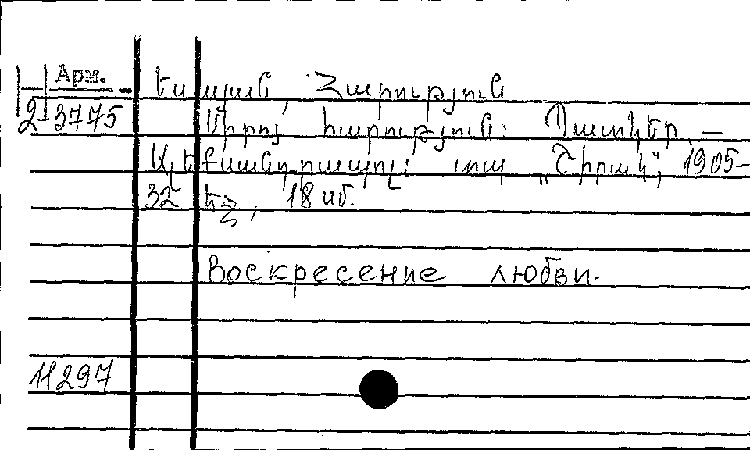 Арм.
2-3775
Եսայան, Հարություն
Սիրոյ հարություն: Պատկեր. —
Ալեքսանդրապոլ: տպ „Շիրակ", 1905—
32 եջ, 18 սմ.
Воскресение любви.
11297